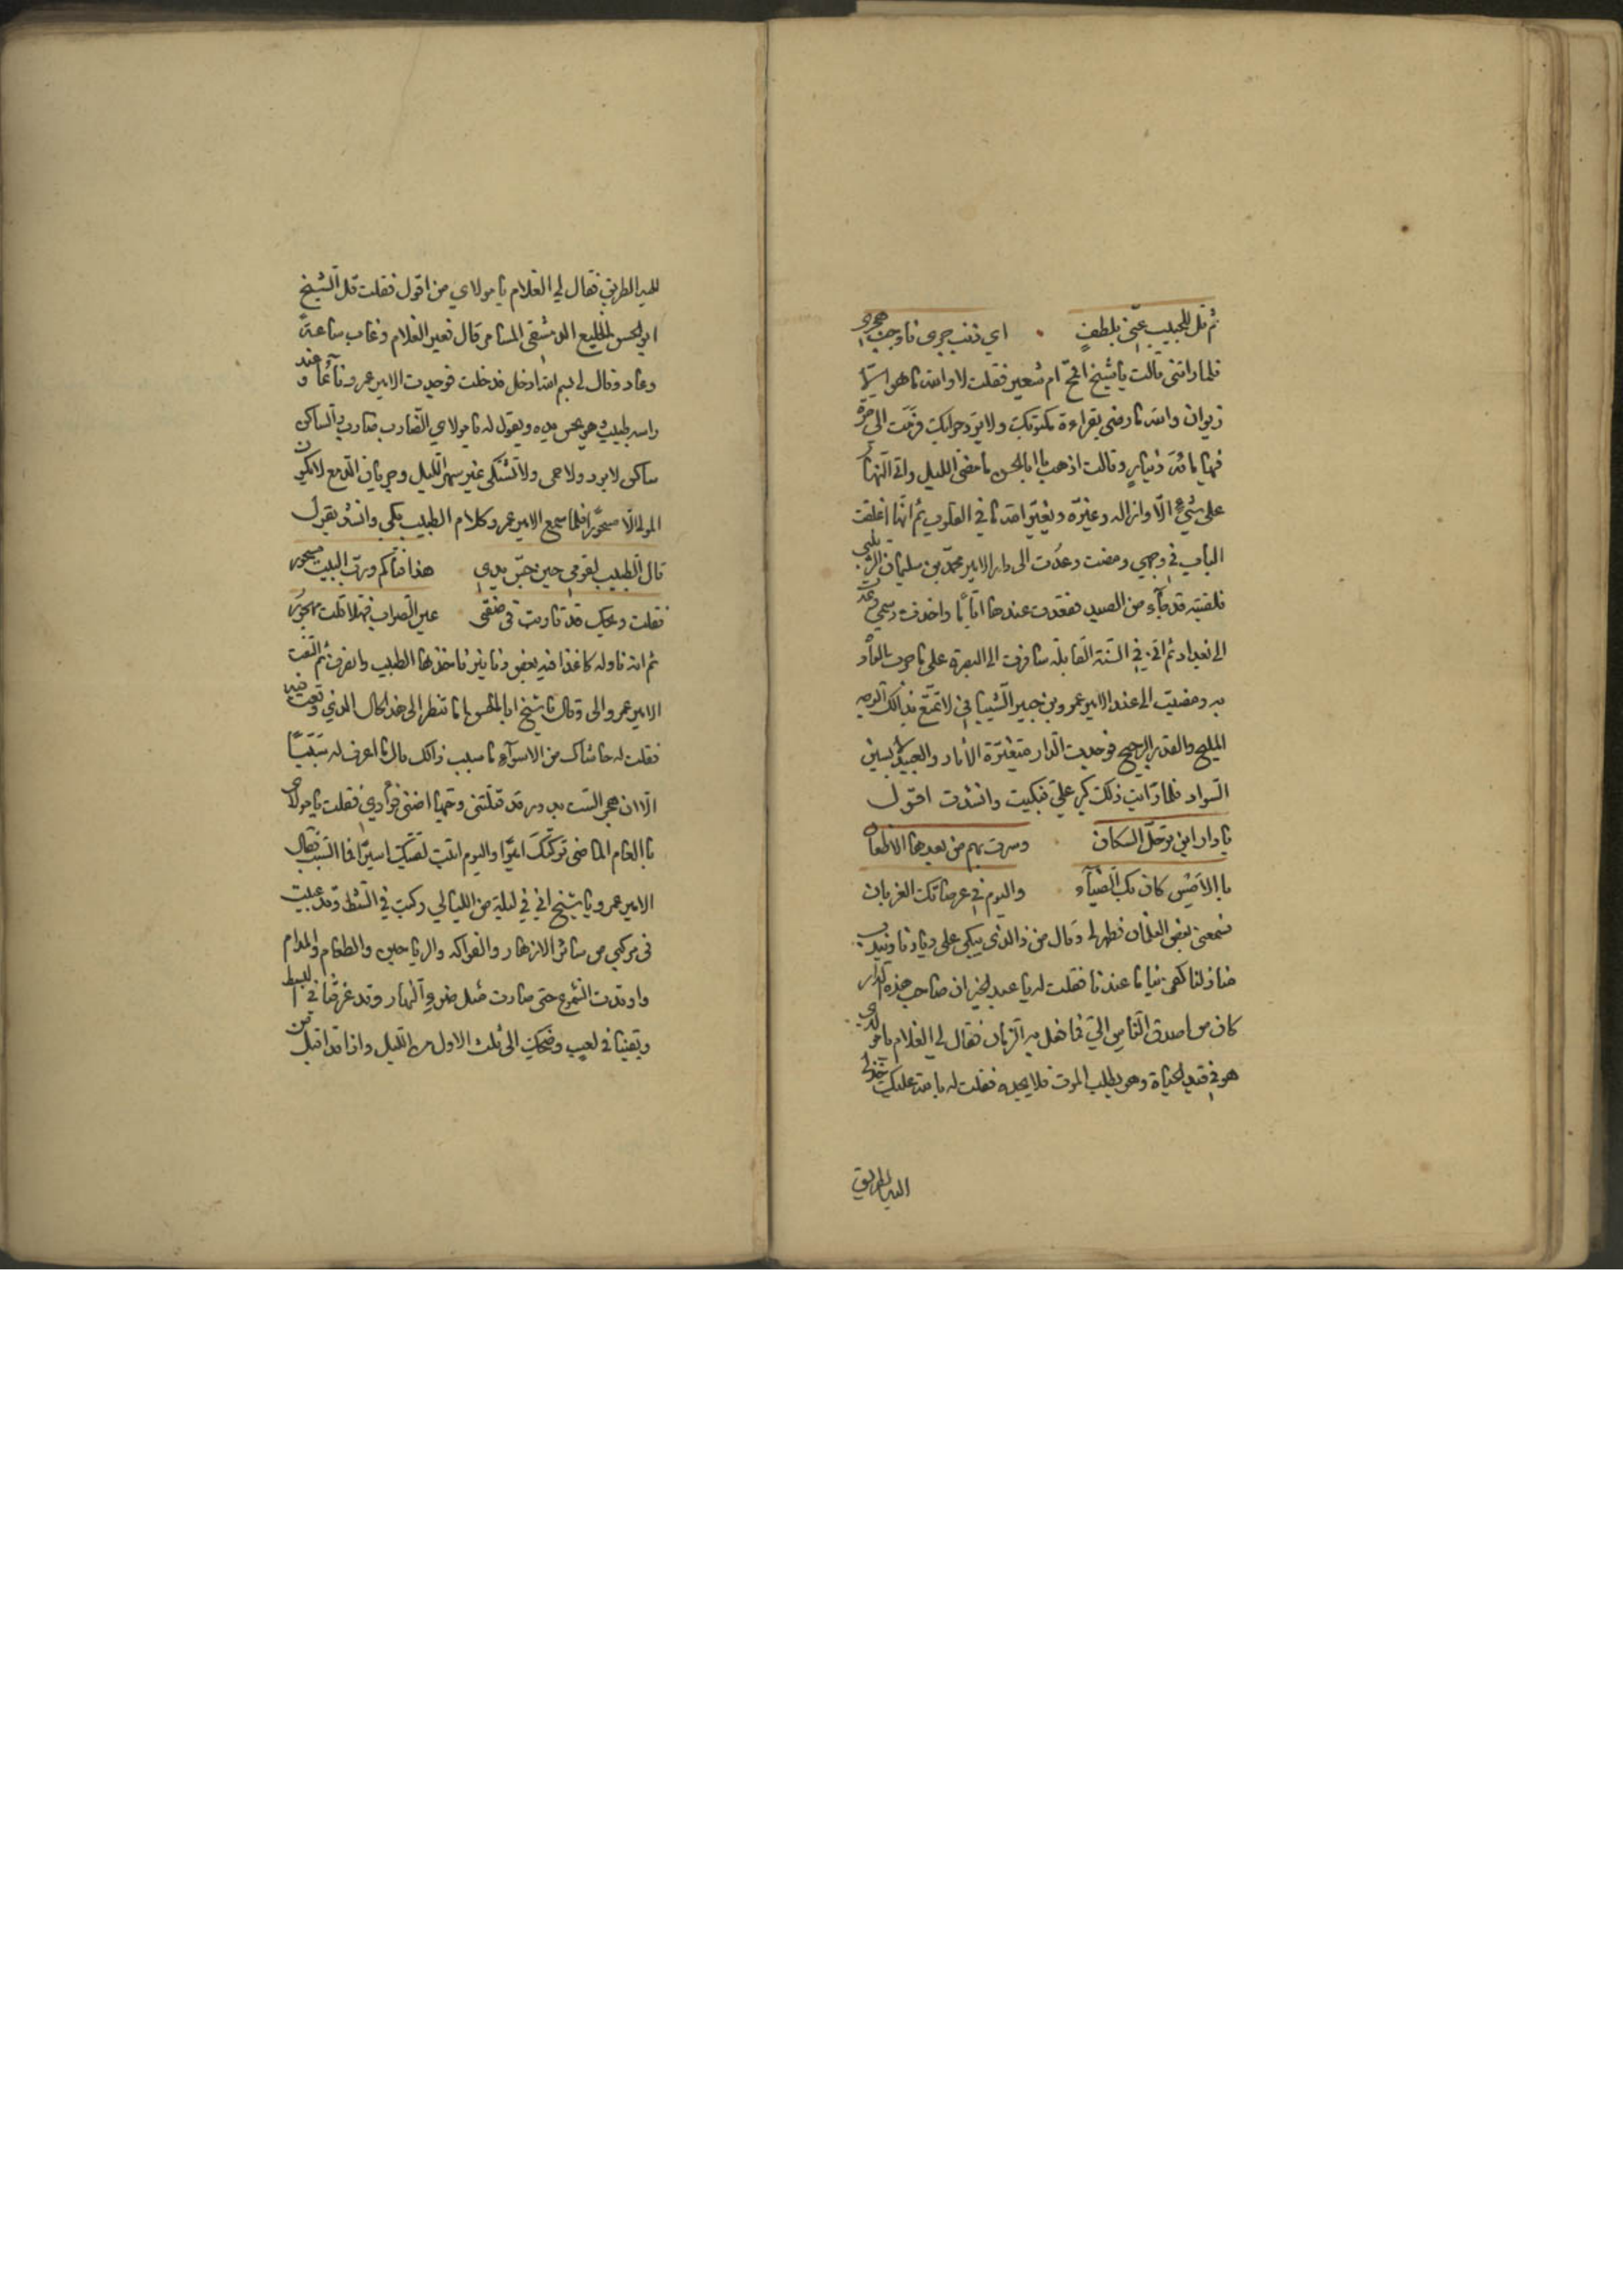 ثم قل للحبيب عني بلطف اي ذنب جرى فاوجب هجري
فلما راتني قالت يا شيخ اقمح ام شعير فقلت لا والله ما هو الا
زيوان والله ما رضي بقراءة مكتوبك ولا يرد جوابك فرمت الي صرة
فيها مائة دينار وقالت اذهب يا ابا الحسن ما مضى الليل واتى النهار
على شيء الا وازاله وغيره ويغير الله ما في القلوب ثم انها اغلقت
الباب في وجهي ومضت وعدت الى دار الامير محمد بن سليمان الزينبي
فلقيته قد جاء من الصيد فقعدت عندها اياما واخذت رسمي وعدت
الى بغداد ثم اني في السنة القابلة سافرت الى البصرة على ما جرت العادة
به ومضيت الى عند الامير عمرو بن جبير الشيباني لاتمتع بذلك الوجه
المليح والقد الرجيح فوجدت الدار متغيرة الاثار والعبيد لابسين
السواد فلما رايت ذلك كبر علي فبكيت وانشدت اقول
يا دار اين ترحل السكان وسرت بهم من بعدها الاظعان
بالامس كان بك الضياء واليوم في عرصاتك الغربان
فسمعني بعض الغلمان فظهر لي وقال من ذا الذي يبكي على ديارنا ويندب
منازلنا كفى بنا ما عندنا فقلت له يا عبد الخير ان صاحب هذه الدار
كان من اصدق الناس الي فما فعل به الزمان فقال لي الغلام يا مولاي
هو في قيد الحياة وهو يطلب الموت فلا يجده فقلت له بالله عليك خذ لي
اليه الطريق
اليه الطريق فقال لي الغلام يا مولاي من اقول فقلت قل الشيخ
ابو الحسن الخليع الدمشقي المسامر قال فعبر الغلام وغاب ساعة
وعاد وقال لي بسم الله ادخل فدخلت فوجدت الامير عمرو نائما وعند
راسه طبيب وهو يجس يده ويقول له يا مولاي الضارب ضارب والساكن
ساكن لا برد ولا حمى ولا تشتكي غير سهر الليل وجريان الدمع لا يكون
المولى الا مسحورا فلما سمع الامير عمرو كلام الطبيب بكى وانشد يقول
قال الطبيب لقومي حين جس يدي هذا فتاكم ورب البيت مسحور
فقلت ويحك قد قاربت في صفتي عين الصواب فهلا قلت مهجور
ثم انه ناوله كاغدا فيه بعض دنانير فاخذها الطبيب وانصرف ثم التفت
الامير عمرو الي وقال يا شيخ ابا الحسن اما تنظر الى هذا الحال الذي وقعت فيه
فقلت له حاشاك من الاسواء ما سبب ذلك قال ما اعرف له سببا
الا ان هجر الست بدور قد قتلني وحبها اضنى فؤادي فقلت يا مولاي
بالعام الماضي تركتك اميرا واليوم اتيت لقيتك اسيرا فما السبب فقال
الامير عمرو يا شيخ اني في ليلة من الليالي ركبت في الشط وقد عبيت
في مركبي من سائر الازهار والفواكه والرياحين والطعام والمدام
واوقدت الشموع حتى صارت مثل ضوء النهار وقد غرقنا في البسط
وبقينا في لعب وضحك الى ثلث الاول من الليل واذا قد اقبل من